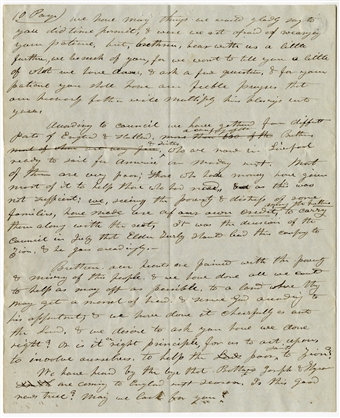 (10 Page) we have many things we would gladly say to
you did time permit, & were we not afraid of wearying
your patience, but, brethren, bear with us a little
further, we beseech of you, for we want to tell you a little
of what we have done, & ask a few questions, & for your
patience you shall have our feeble prayers that
our heavenly father will multiply his blessings unto
you.
According to council we have gathered from different
Parts of England &
ready to sail for America on Monday next. Most
of them are very poor; Those who had money have given
most of it to help those who had none, but as this was
not sufficient; we, seeing the poverty & distress of some
families, have made use of our own credit, to carry
them along with the rest, It was the decision of the
Council in July that Elder Turly should lead this company to
Zion, & he goes accordingly.—
Brethren our hearts are pained with the poverty
& misery of this people, & we have done all we could
to help as many off as possible, to a land where they
may get a morsel of bread, & serve God according to
his appointment; & we have done it cheerfully as unto
the Lord, & we desire to ask you have we done
right? Or is it a right principle, for us to act upon
to involve ourselves, to help the poor to Zion?
We have heard by the bye that Brothers Joseph &
are coming to England next season. Is this good
news true? May we look for you?